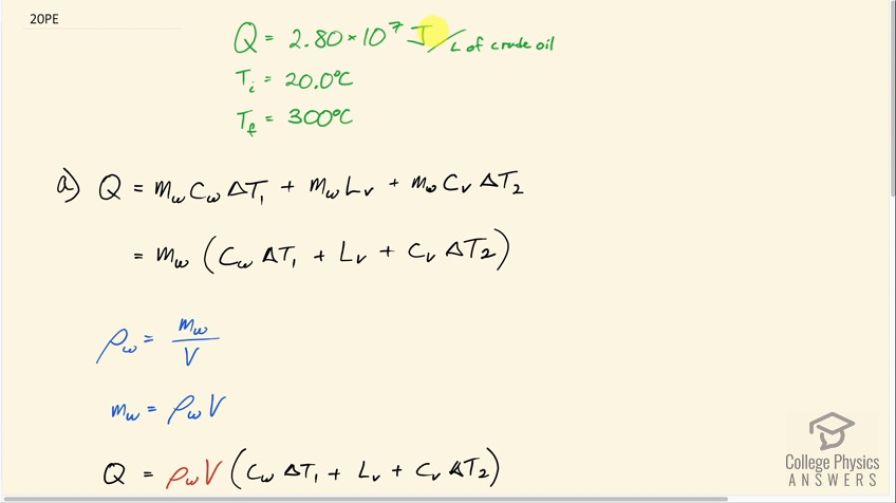 20PE
Q = 2.80 × 10⁷ J/L of crude oil
Tᵢ = 20.0°C
T_f = 300°C
a) Q = m_w c_w ΔT₁ + m_w L_v + m_w c_v ΔT₂
= m_w (c_w ΔT₁ + L_v + c_v ΔT₂)
ρ_w = m_w / V
m_w = ρ_w V
Q = ρ_w V (c_w ΔT₁ + L_v + c_v ΔT₂)
College Physics
ANSWERS